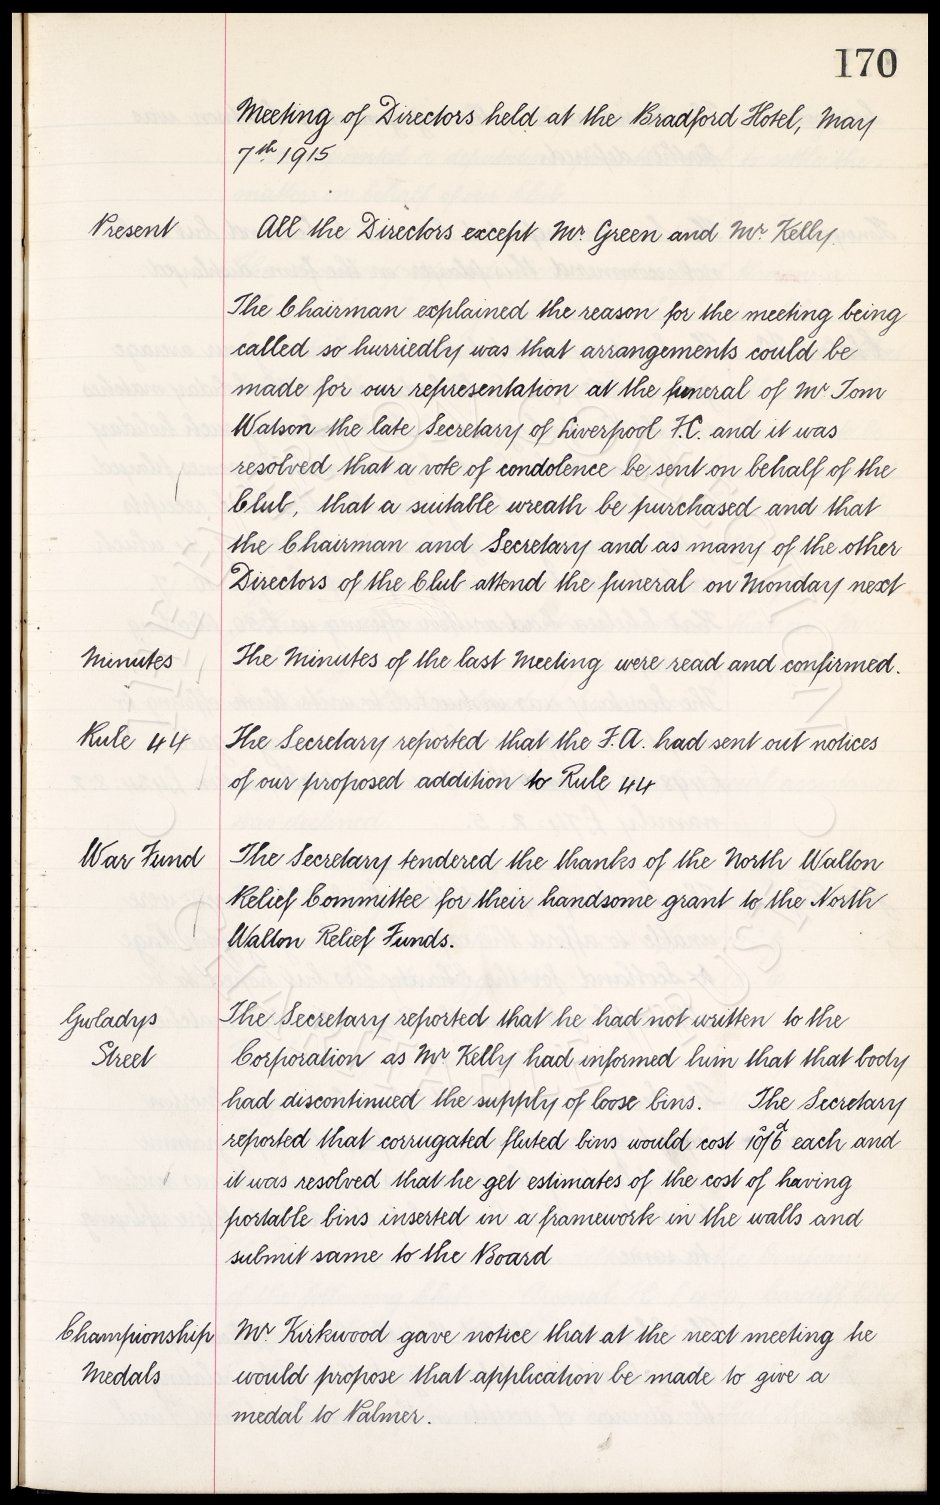 170
Meeting of Directors held at the Bradford Hotel, May
7th 1915
Present All the Directors except Mr. Green and Mr. Kelly.
The Chairman explained the reason for the meeting being
called so hurriedly was that arrangements could be
made for our representation at the funeral of Mr Tom
Watson the late Secretary of Liverpool F.C. and it was
resolved that a vote of condolence be sent on behalf of the
Club, that a suitable wreath be purchased and that
the Chairman and Secretary and as many of the other
Directors of the Club attend the funeral on Monday next
Minutes The Minutes of the last Meeting were read and confirmed.
Rule 44 The Secretary reported that the F.A. had sent out notices
of our proposed addition to Rule 44
War Fund The Secretary tendered the thanks of the North Walton
Relief Committee for their handsome grant to the North
Walton Relief Funds.
Gwladys The Secretary reported that he had not written to the
Street Corporation as Mr Kelly had informed him that that body
had discontinued the supply of loose bins. The Secretary
reported that corrugated fluted bins would cost 10s/6d each and
it was resolved that he get estimates of the cost of having
portable bins inserted in a framework in the walls and
submit same to the Board
Championship Mr Kirkwood gave notice that at the next meeting he
Medals would propose that application be made to give a
medal to Palmer.